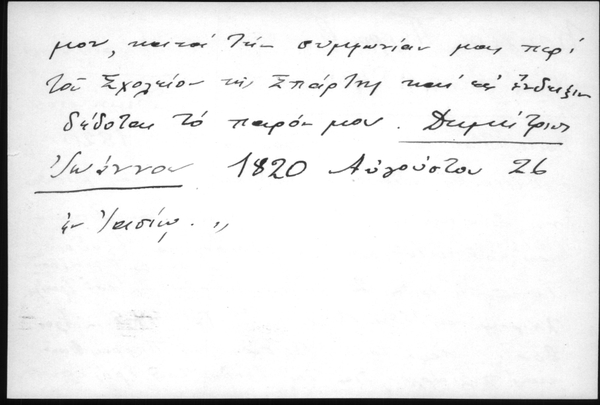 μου, κατά τήν συμφωνίαν μας περί
τοῦ Σχολείου τῆς Σπάρτης καί εἰς ἔνδειξιν
δίδοται τό παρόν μου. Δημήτριος
Ἰωάννου 1820 Αὐγούστου 26
ἐν Ἰασίῳ. „